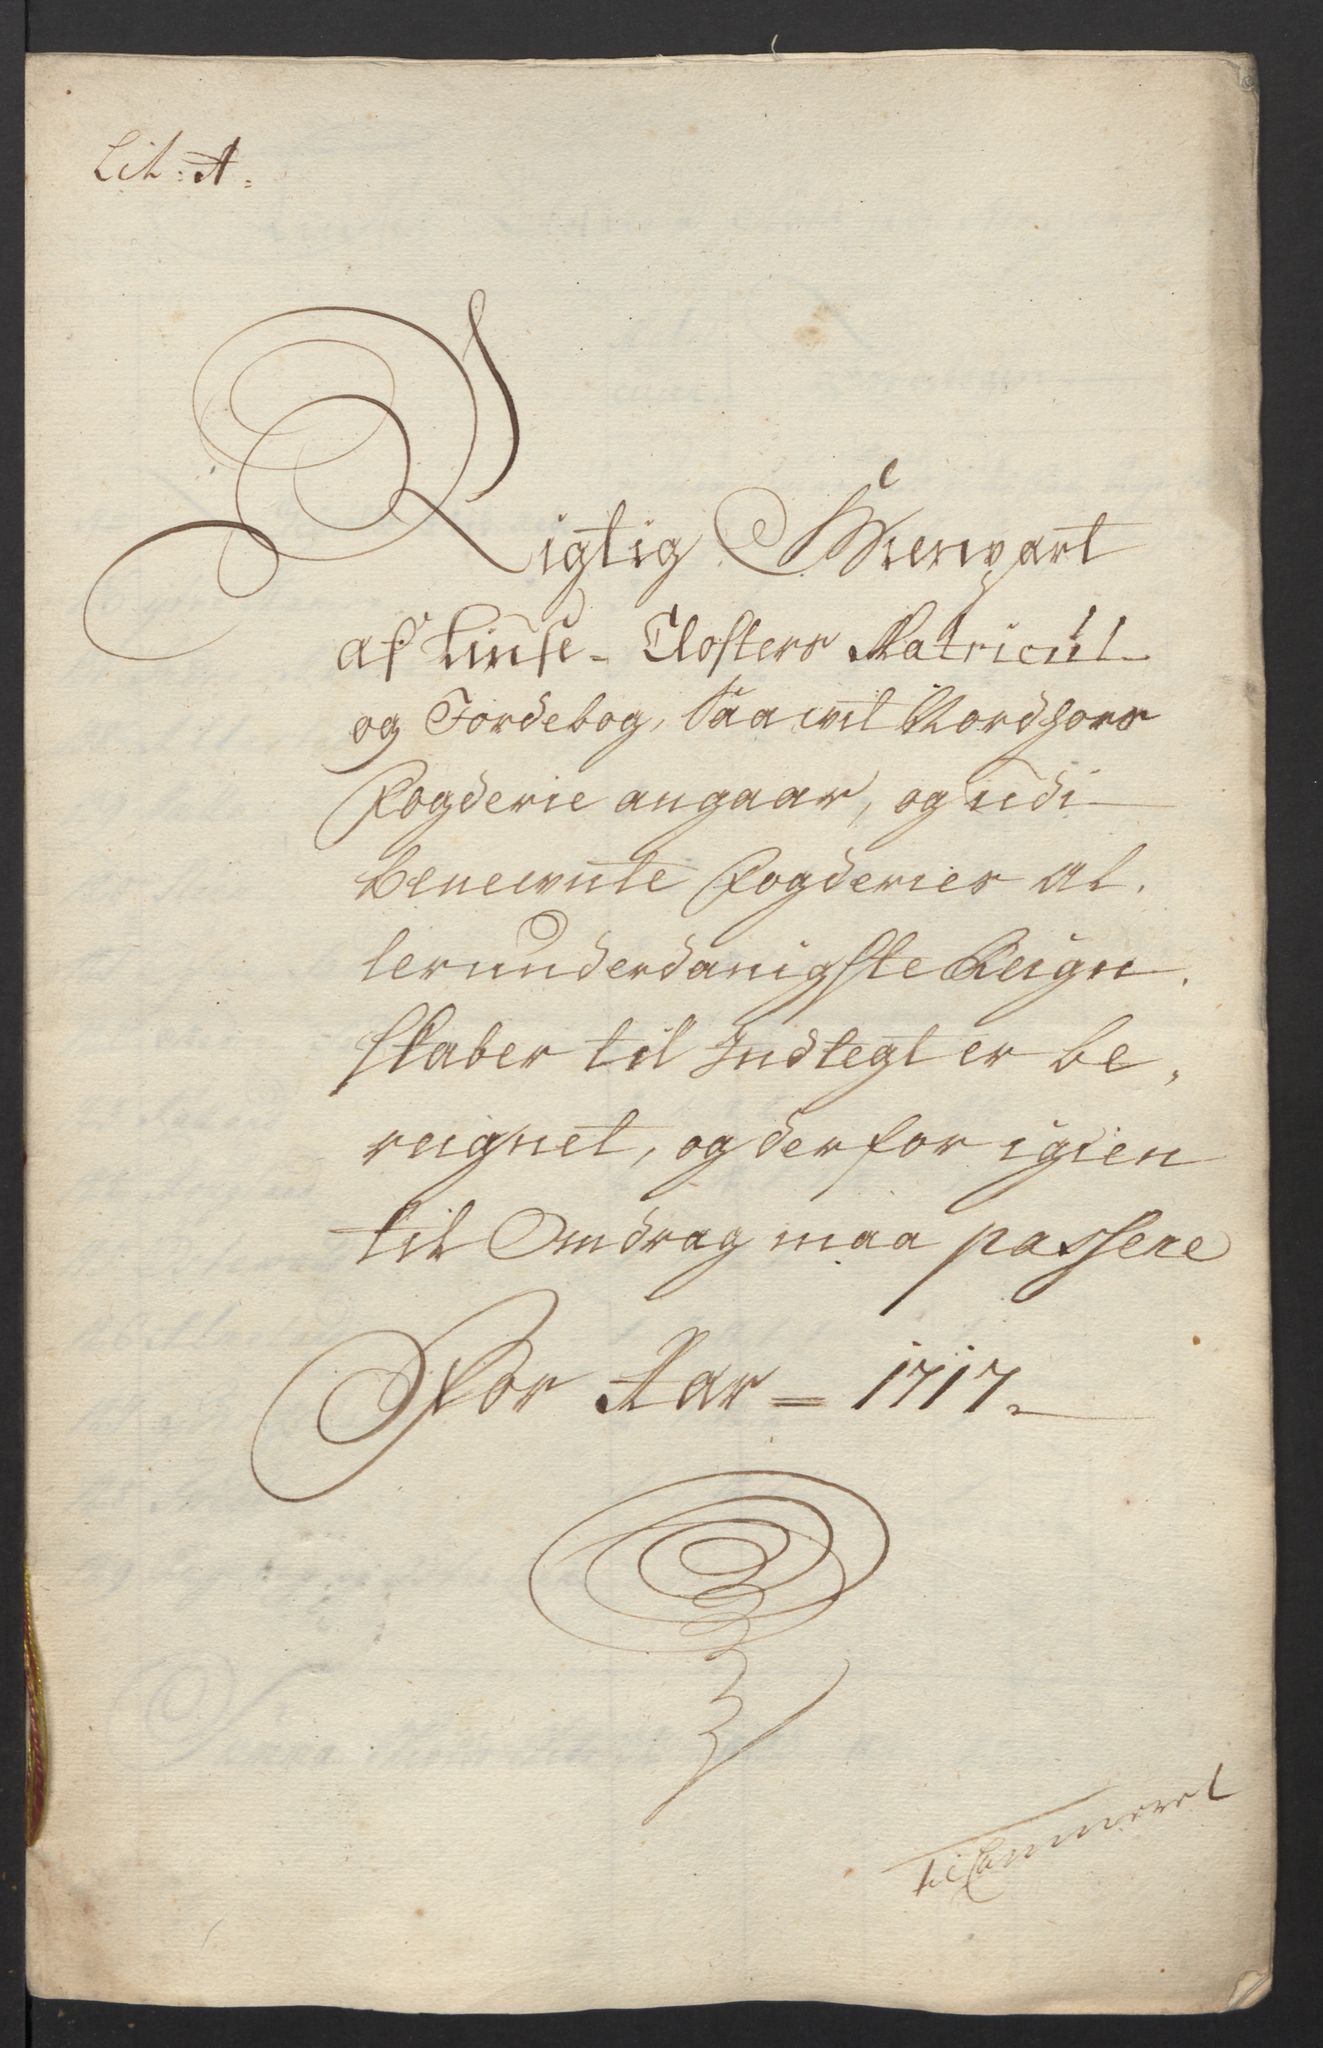 Lit: A:
Rigtig Gienpart
af Liuse-Closters Matricul
og Jordebog, Saavit Nordhors
Fogderie angaar, og udi
benevnte Fogderies al,
lerunderdanigste Reign,
skaber til Indtegt er be,
reignet, og derfor igien
til Omdrag maa passere
For Aar = 1717.
til Cammeret